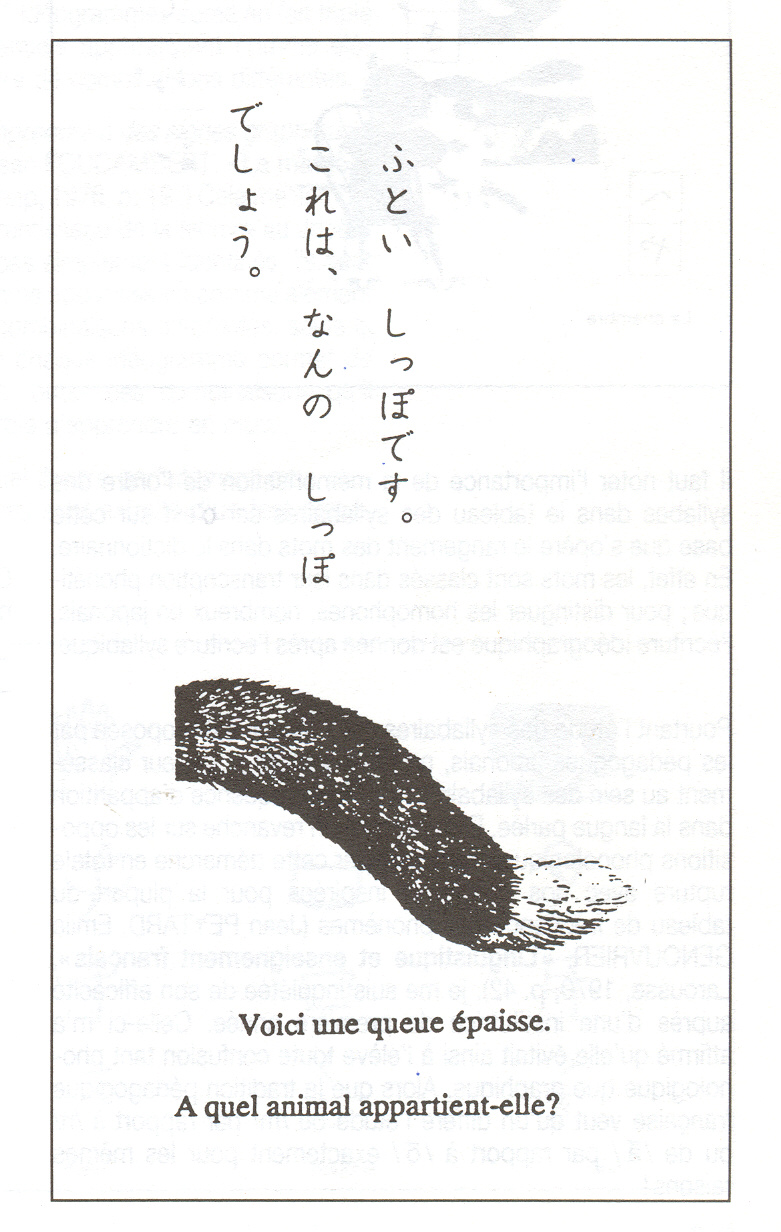 ふとい　しっぽです。
これは、なんの　しっぽ
でしょう。
Voici une queue épaisse.
A quel animal appartient-elle?